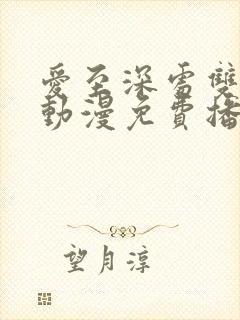 愛至深雷雙
動漫免費播
望月淳